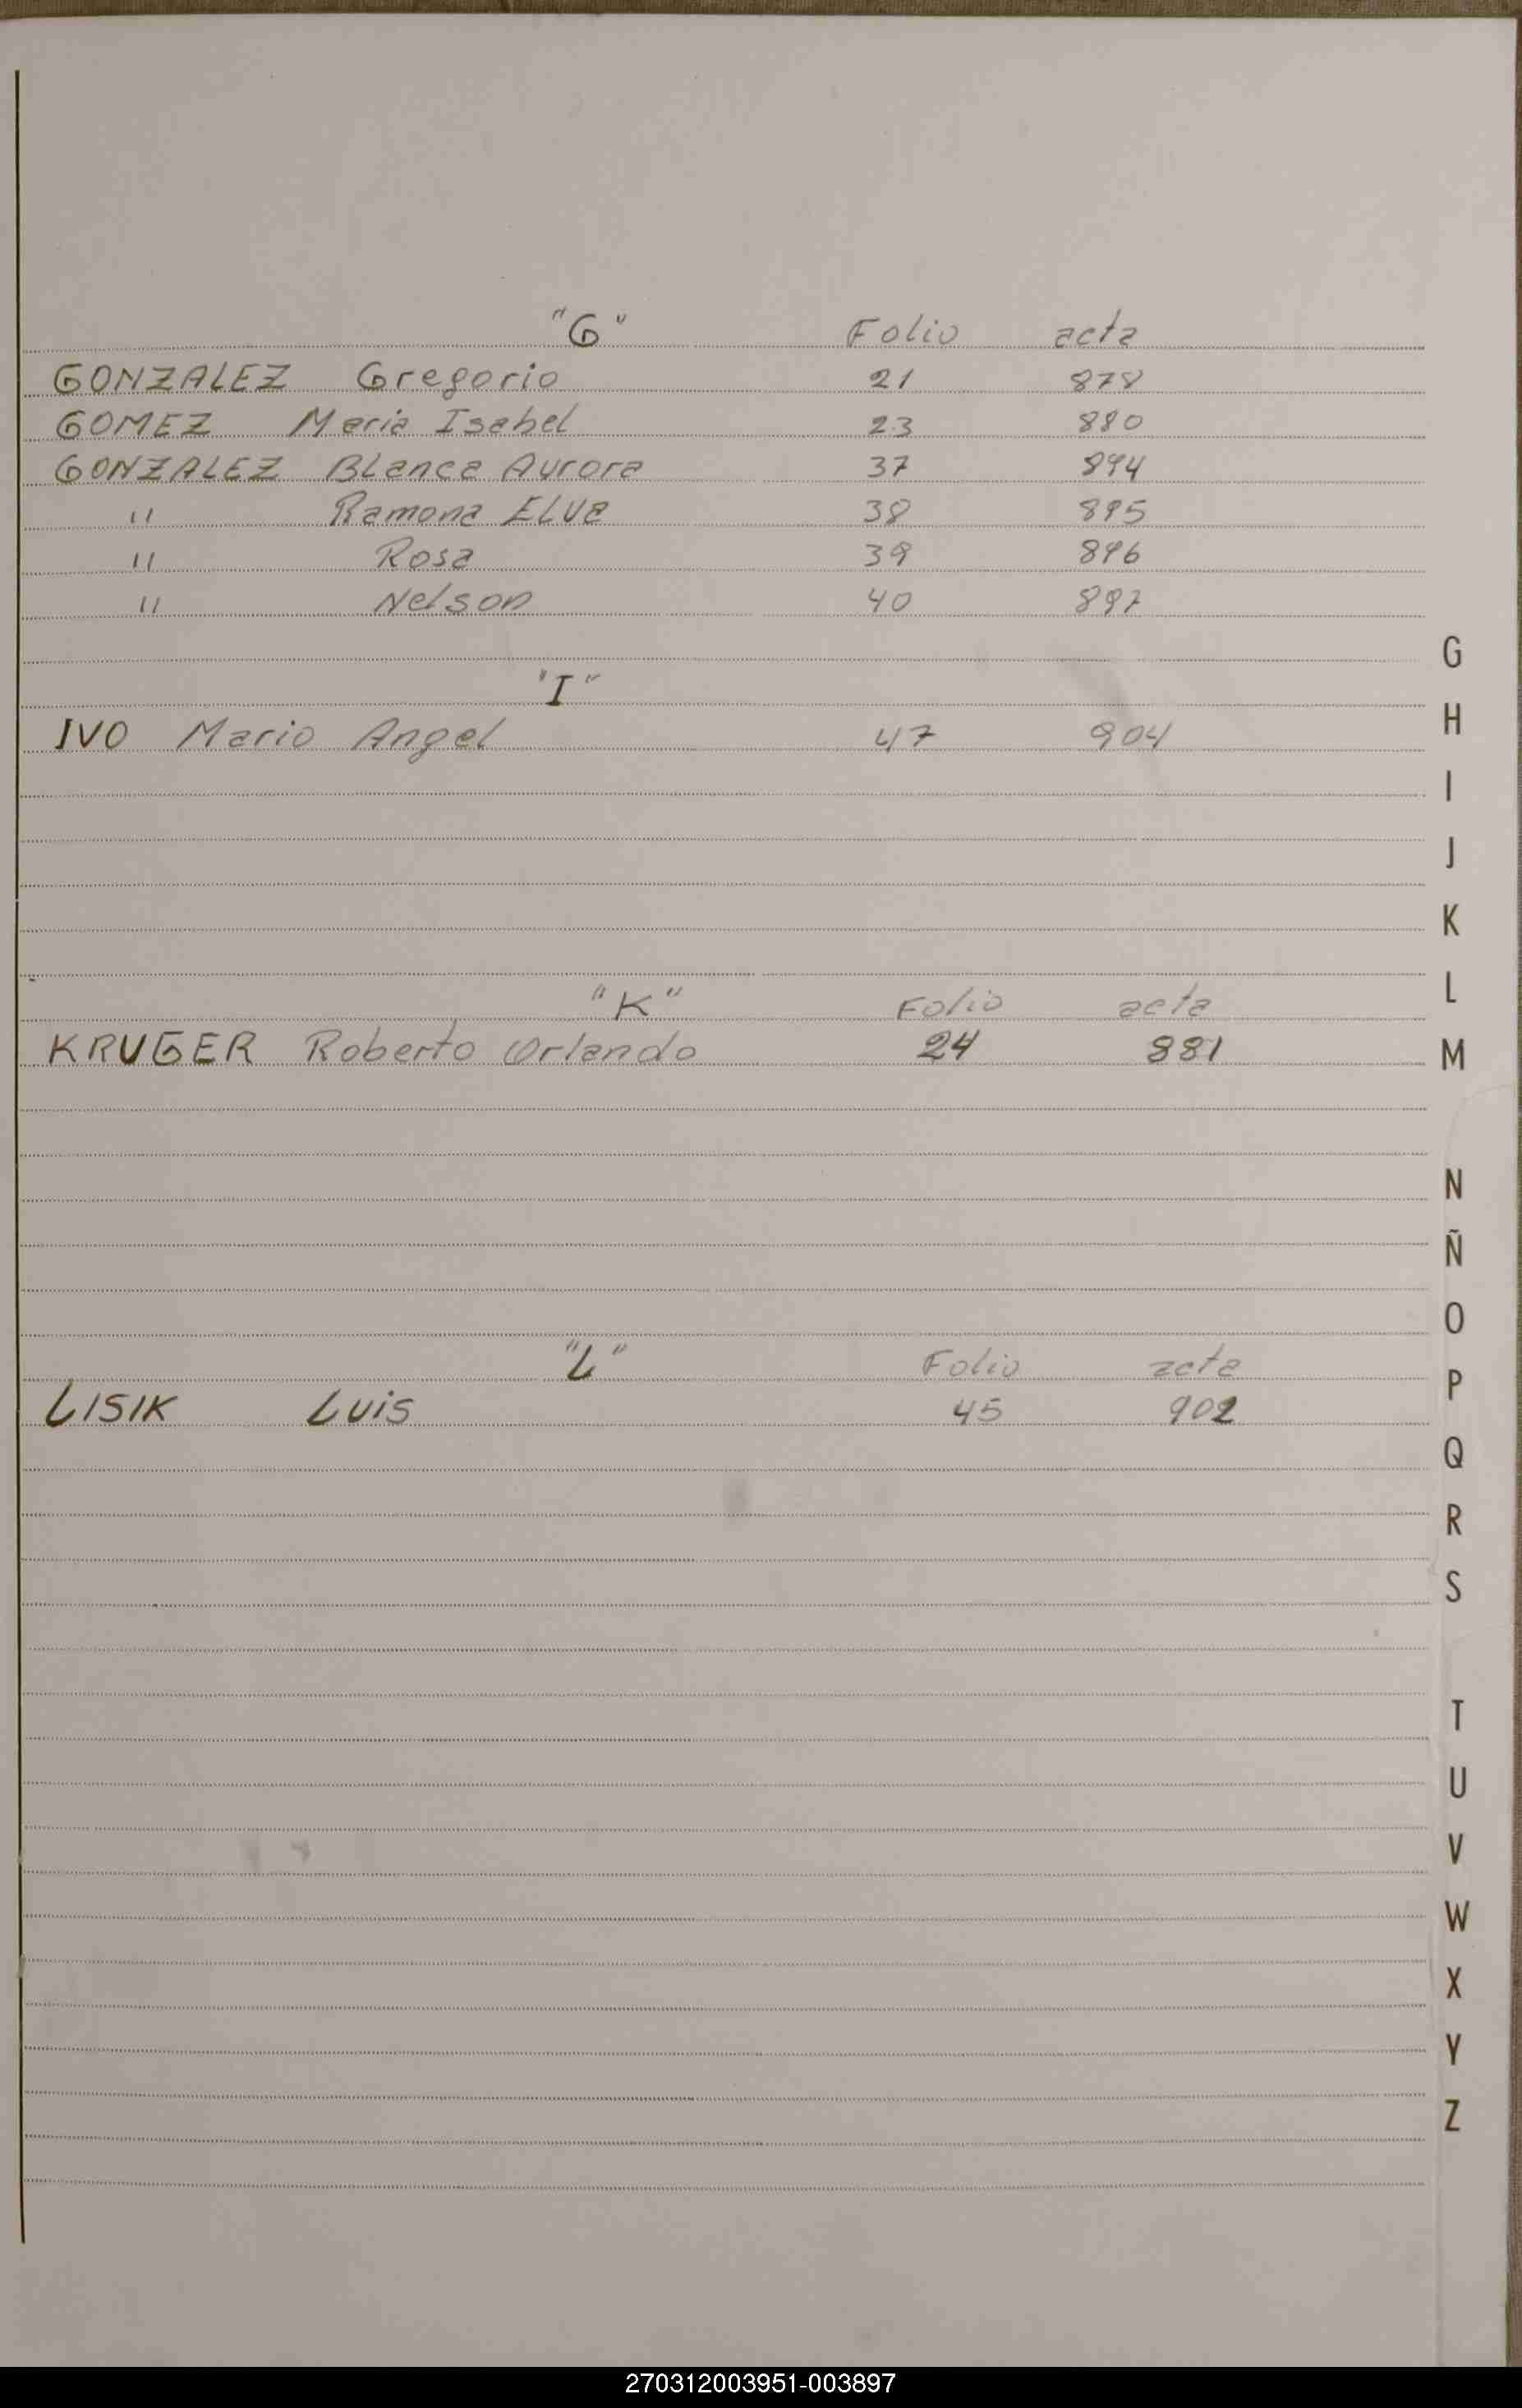 "G" Folio acta
GONZALEZ Gregorio 21 878
GOMEZ Maria Isabel 23 880
GONZALEZ Blanca Aurora 37 894
" Ramona ELVa 38 895
" Rosa 39 896
" Nelson 40 897
G
"I"
H
IVO Mario Angel 47 904
I
J
K
L
"K" Folio acta
KRUGER Roberto Orlando 24 881
M
N
Ñ
O
"L" Folio acta
P
LISIK Luis 45 902
Q
R
S
T
U
V
W
X
Y
Z
270312003951-003897